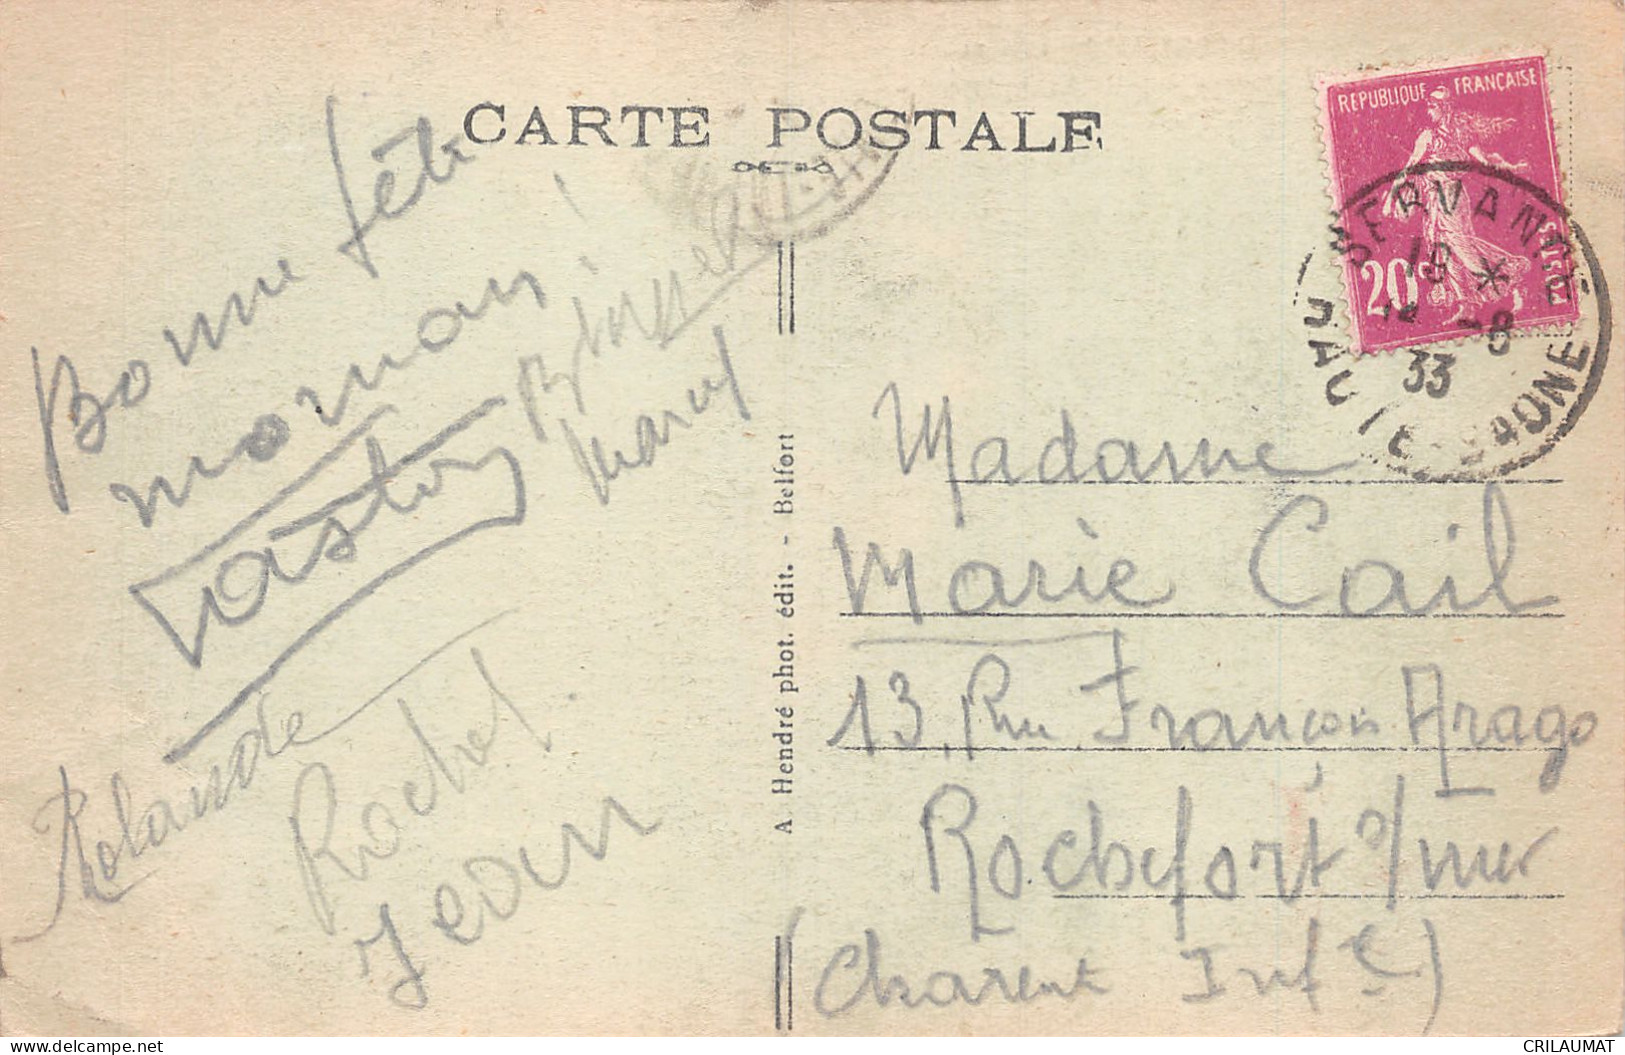 CARTE POSTALE
Bonne fête
maman!
Gaston
Marcel
Rolande
Rachel
Jean
A Hendré phot. édit. - Belfort
REPUBLIQUE FRANÇAISE
20c
POSTES
SERVANCE
18 *
-8
33
HAUTE-SAONE
Madame
Marie Cail
13, Rue François Arago
Rochefort s/mer
(Charente Infre)
www.delcampe.net
CRILAUMAT